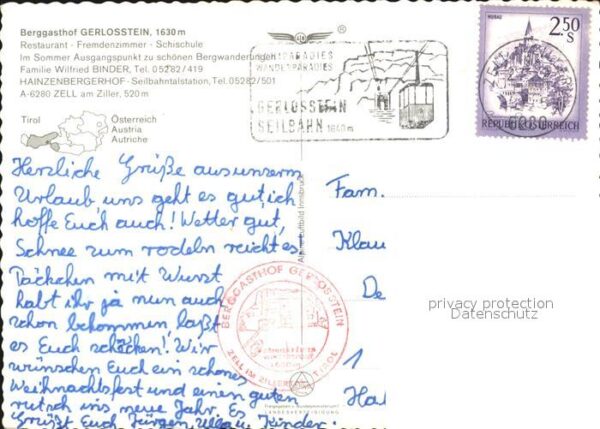 Berggasthof GERLOSSTEIN, 1630 m
Restaurant · Fremdenzimmer · Schischule
Im Sommer Ausgangspunkt zu schönen Bergwanderungen
Familie Wilfried BINDER, Tel. 05282/419
HAINZENBERGERHOF · Seilbahntalstation, Tel. 05282/501
A-6280 ZELL am Ziller, 520 m
Tirol
Österreich
Austria
Autriche
WANDERPARADIES
GERLOSSTEIN
SEILBAHN 1640 m
MURAU
2.50
S
REPUBLIK ÖSTERREICH
Herzliche Grüße aus unserm
Urlaub uns geht es gut, ich
hoffe Euch auch! Wetter gut,
Schnee zum rodeln reicht es
Päckchen mit Wurst
habt ihr ja nun auch
schon bekommen, laßt
es Euch schmecken! Wir
wünschen Euch ein schönes
Weihnachtsfest und einen guten
rutsch ins neue Jahr. Es
Grüßt Euch Jürgen, Ulla u. Kinder.
Alpine Luftbild Innsbruck
Fam.
Klau
De
1
Ha
BERGGASTHOF GERLOSSTEIN
ZELL IM ZILLERTAL TIROL
LANDESVERTEIDIGUNG
privacy protection
Datenschutz